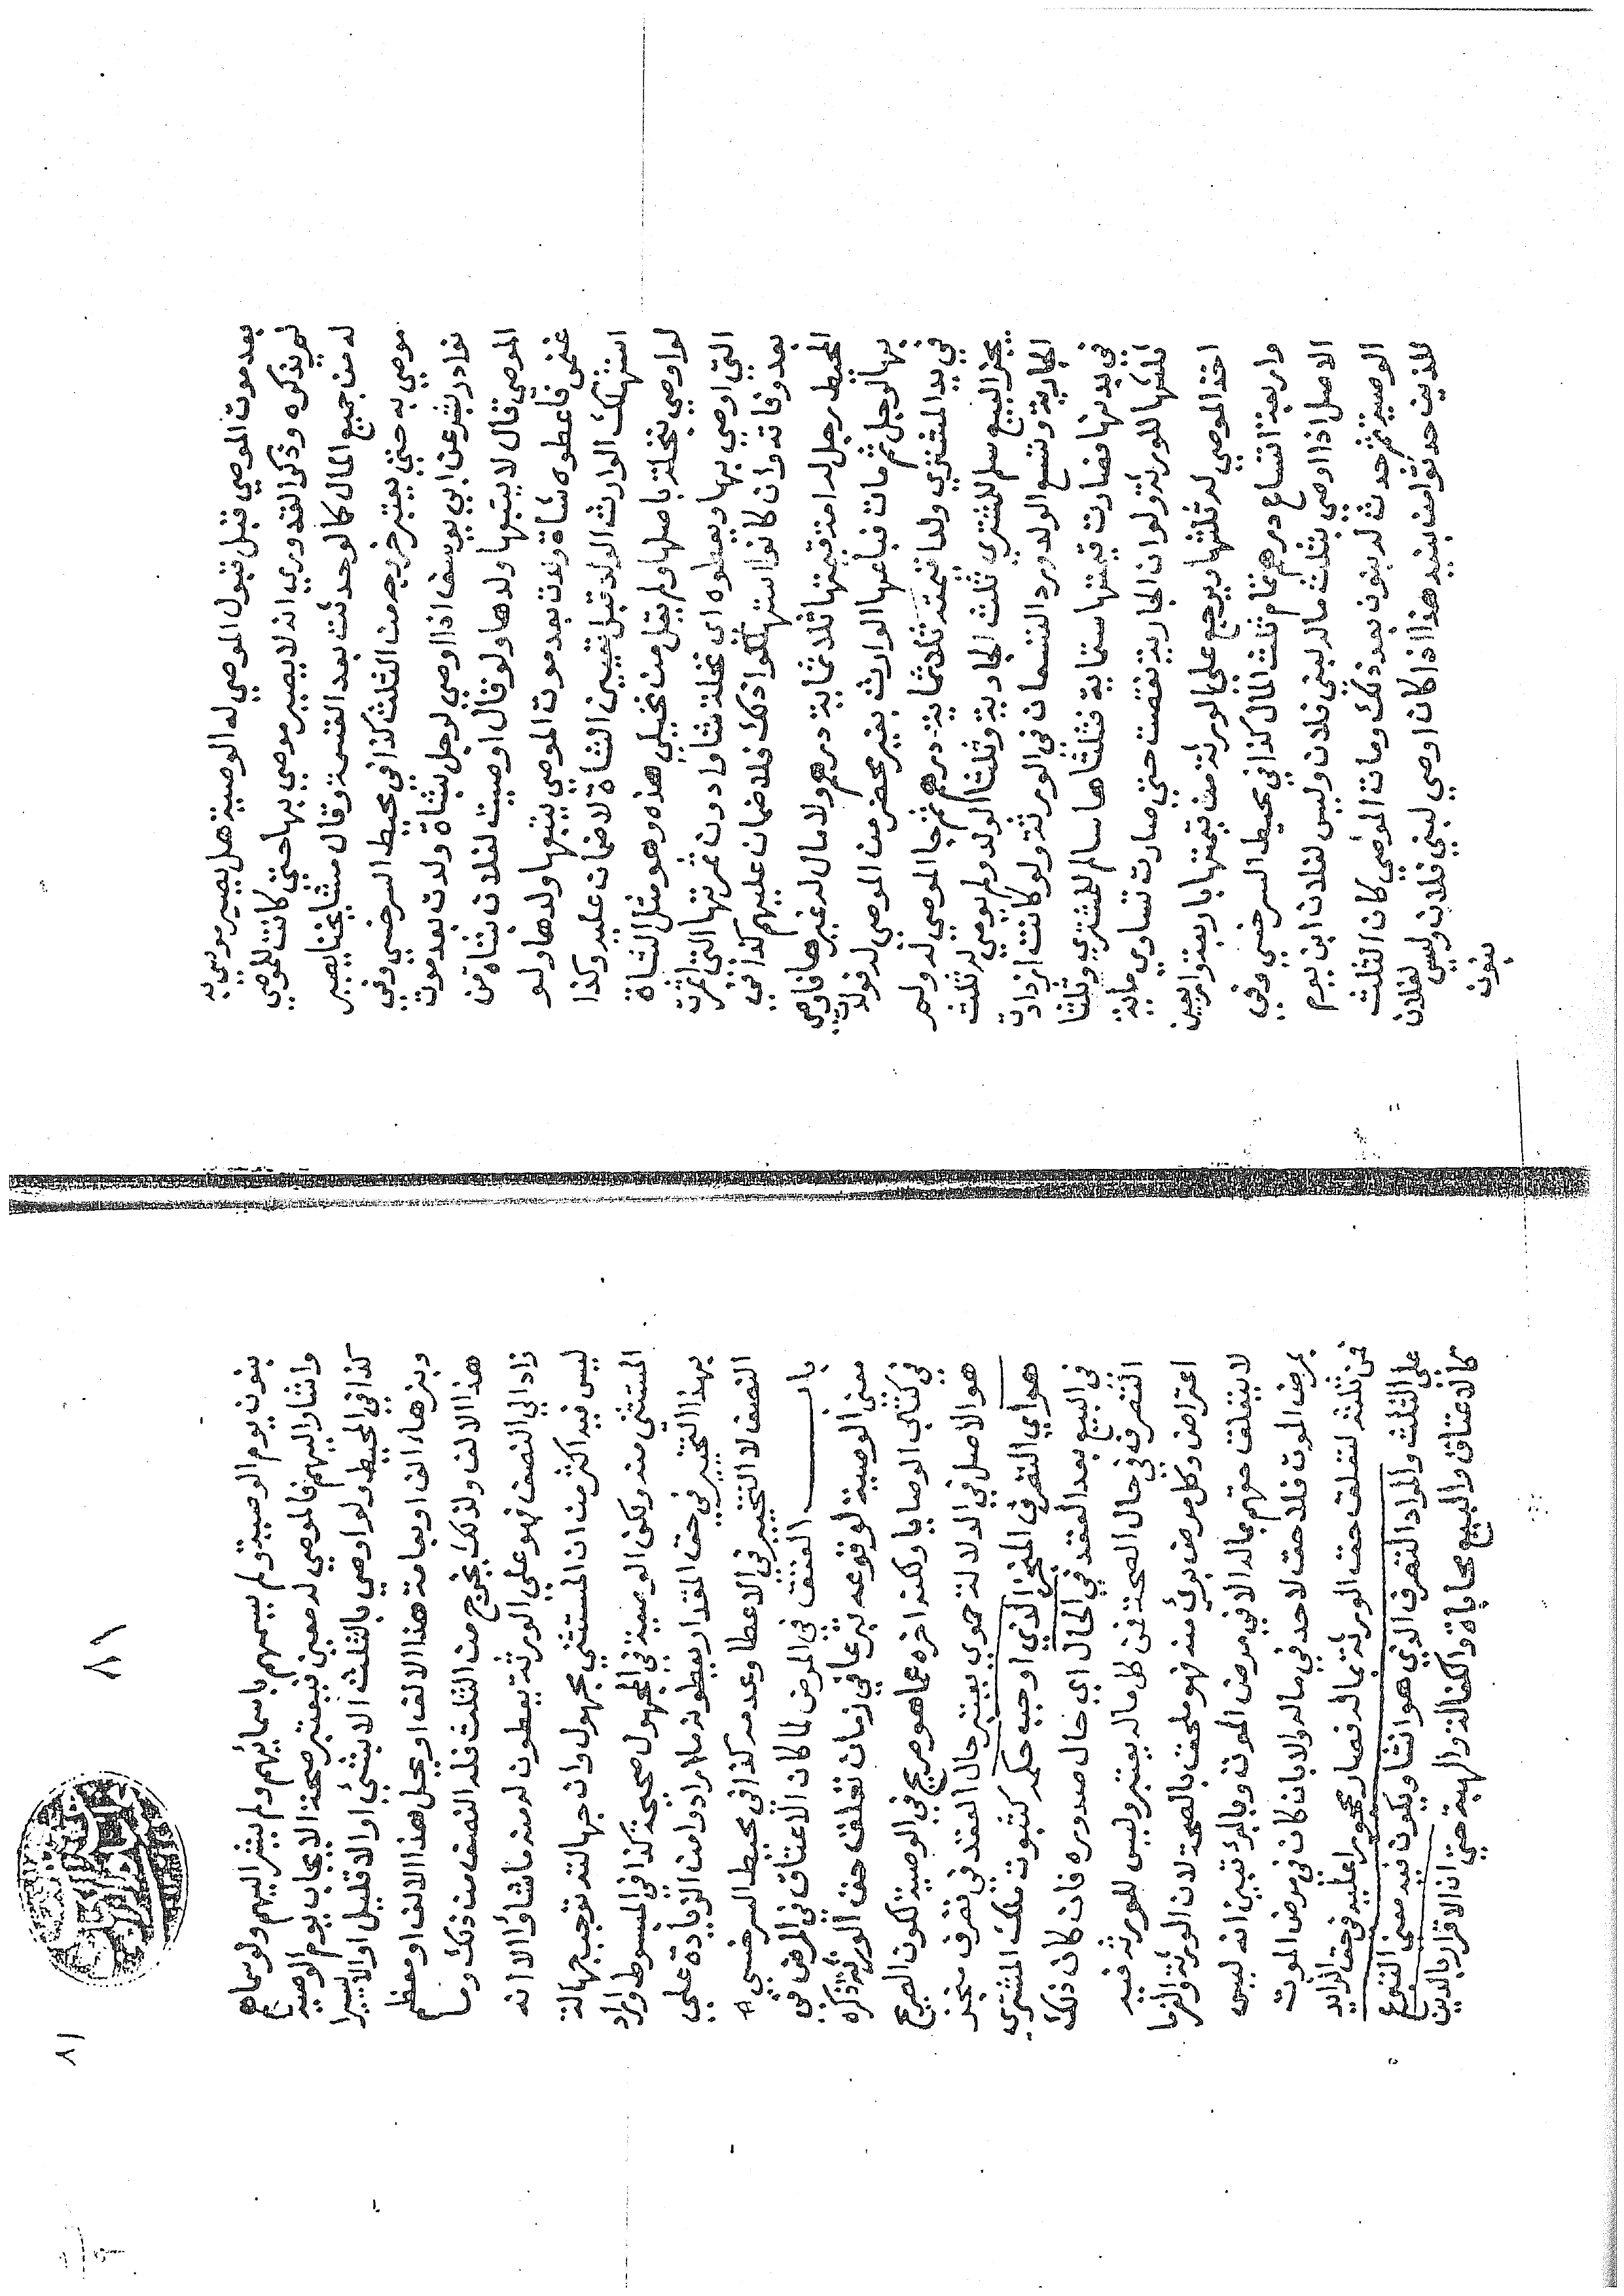 بعد موت الموصي قبل قبول الموصي له الوصية هل يصير موصي به
لم يذكره وذكر القدوري انه لا يصير موصي بها حتى كانت للموصي
له من جميع المال كما لو حدثت بعد القسمة وقال مشايخنا يصير
موصي به حتى يعتبر خروجه من الثلث كذا في محيط السرخسي وفي
نوادر بشر عن ابي يوسف اذا اوصي لرجل بشاة ولدت بعد موت
الموصي قال لا يتبعها ولدها ولو قال اوصيت لفلان بشاة من
غنمي فاعطوه شاة ولدت بعد موت الموصي يتبعها ولدها ولو
استهلك الوارث الولد قبل تعيين الشاة لا ضمان عليه وكذا
لو اوصي بنخلة باصلها ولم يقل من نخيلي هذه وهو مثل الشاة
التي اوصي بها ويعطوه اي نخلة شاوا دون ثمرتها التي اثمرت
بعد وفاته وان كانوا استهلكوا ذلك فلا ضمان عليهم كذا في
المحيط رجل له امة قيمتها ثلاثماية درهم ولا مال له غيرها فاوصي
بها لرجل ثم مات فباعها الوارث بغير محضر من الموصي له فولدت
في يد المشتري ولدا قيمته ثلاثماية درهم ثم جا الموصي له ولم
يجز البيع سلم للمشتري ثلث الجارية وثلثا الولد ولم يوصي له ثلث
الجارية وتسع الولد ورد التسعان في الورثة ولو كانت ازدادت
في يديها فصارت قيمتها ستماية فثلثاها سالم للمشتري وثلثا
ثلثها للورثة ولو ان الجارية نقصت حتى صارت تساوي ماية
اخذ الموصي له ثلثها ويرجع على الورثة من قيمتها باربعة واربعين
واربعة اتساع درهم تمام ثلث المال كذا في محيط السرخسي وفي
الاصل اذا اوصي بثلث ماله لبني فلان وليس لفلان ابن يوم
الوصية ثم حدث له بنون بعد ذلك ومات الموصي كان الثلث
للذين حدثوا من بنيه هذا اذا كان اوصي لبني فلان وليس لفلان
بنون
٨٩
٨١
بنون يوم الوصية ولم يسمهم باسمائهم ولم يشر اليهم ولو سماهم
واشار اليهم فالموصي له معين فيعتبر صحة الايجاب يوم الوصية
كذا في المحيط ولو اوصي بالثلث الا بشئ او الا قليل او الا يسيرا
وبزهاء الف او بعامة هذا الالف او بجل هذا الالف او معظم
هذا الالف ولذلك يخرج من الثلث فله النصف من ذلك وما
زاد الى النصف فهو على الورثة يعطون له منه ما شاؤا لا انه
ليس فيه اكثر من ان المستثني مجهول وان جهالته توجب جهالة
المستثني منه ولكن الوصية في المجهول صحيحة كذا في المبسوط واراد
بهذا التخيير في حق المقدار يعطونه ما ارادوا من الزيادة على
النصف لا التخيير في الاعطا وعدمه كذا في محيط السرخسي
باب العتق في المرض لما كان الاعتاق في المرض في
معنى الوصية لوقوعه تبرعا في زمان تعلق حق الورثة ذكره
في كتاب الوصايا ولكنه اخره عما هو صريح في الوصية لكون الصريح
هو الاصل في الدلالة حموي يعتبر حال العقد في تصرف منجز
هو اي التصرف المنجز الذي اوجب حكمه كثبوت ملك المشتري
في البيع بعد العقد في الحال اي حال صدوره فان كان ذلك
التصرف في حال الصحة فمن كل ماله يعتبر وليس للورثة فيه
اعتراض وكل مرض برئ منه فهو ملحق بالصحة لان الورثة والغرما
لا يتعلق حقهم بماله الا في مرض الموت وبالبرئ تبين انه ليس
بمرض الموت فلا حق لاحد في ماله ولا بان كان في مرض الموت
فمن ثلثه لتعلق حق الورثة بماله فصار محجورا عليه في حق الزايد
على الثلث والمراد التصرف الذي هو انشا ويكون فيه معنى التبرع
كالاعتاق والبيع محاباة والكفالة والهبة حتى ان الاقرار بالدين